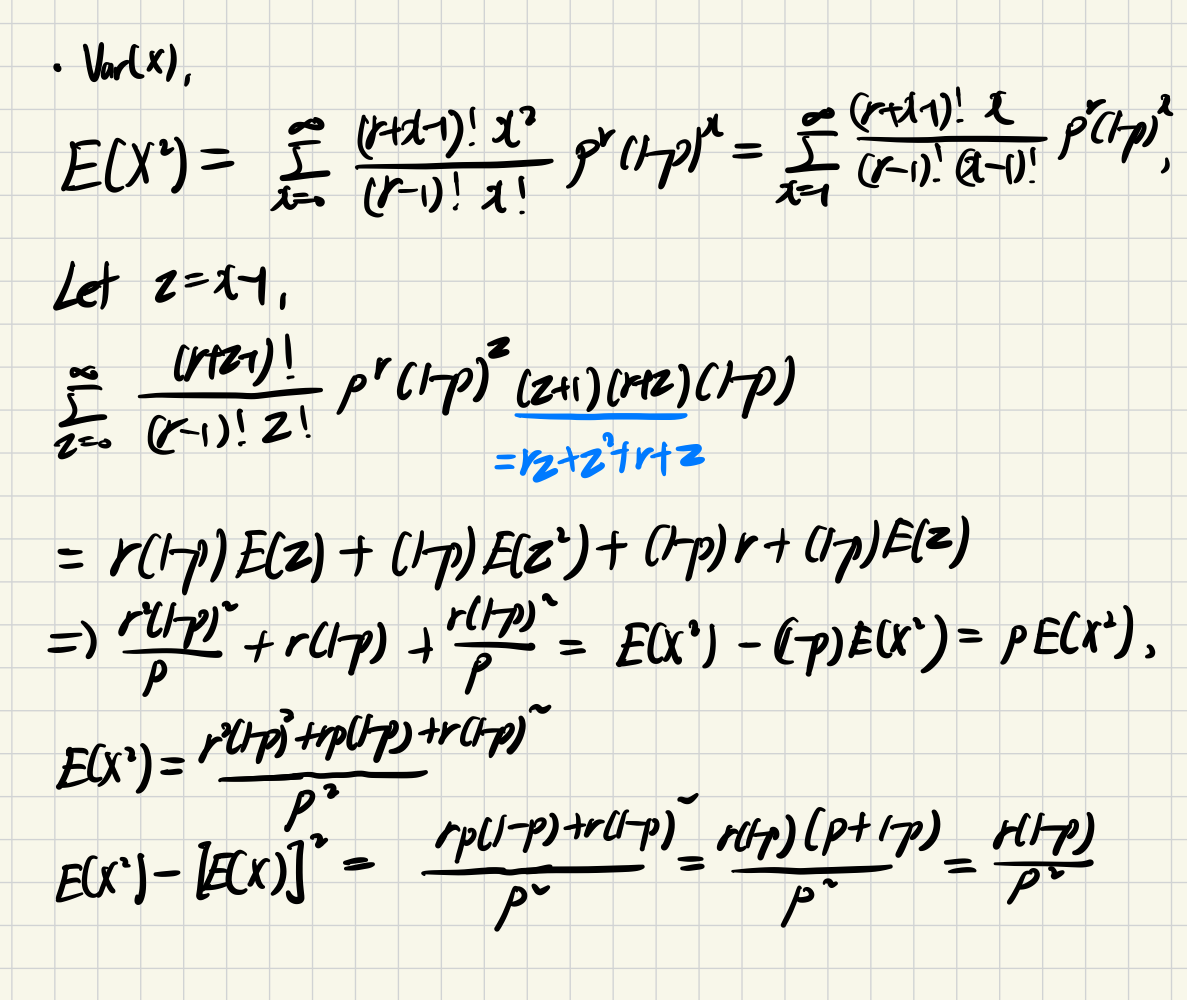 · Var(X),
E(X²) = ∑_{x=0}^{∞} \frac{(r+x-1)! x²}{(r-1)! x!} p^r (1-p)^x = ∑_{x=1}^{∞} \frac{(r+x-1)! x}{(r-1)! (x-1)!} p^r (1-p)^x,
Let z=x-1,
∑_{z=0}^{∞} \frac{(r+z-1)!}{(r-1)! z!} p^r (1-p)^z (z+1)(r+z)(1-p)
=rz+z²+r+z
= r(1-p)E(z) + (1-p)E(z²) + (1-p)r + (1-p)E(z)
⇒ \frac{r²(1-p)²}{p} + r(1-p) + \frac{r(1-p)²}{p} = E(X²) - (1-p)E(X²) = pE(X²),
E(X²) = \frac{r²(1-p)²+rp(1-p)+r(1-p)²}{p²}
E(X²) - [E(X)]² = \frac{rp(1-p)+r(1-p)²}{p²} = \frac{r(1-p)(p+1-p)}{p²} = \frac{r(1-p)}{p²}